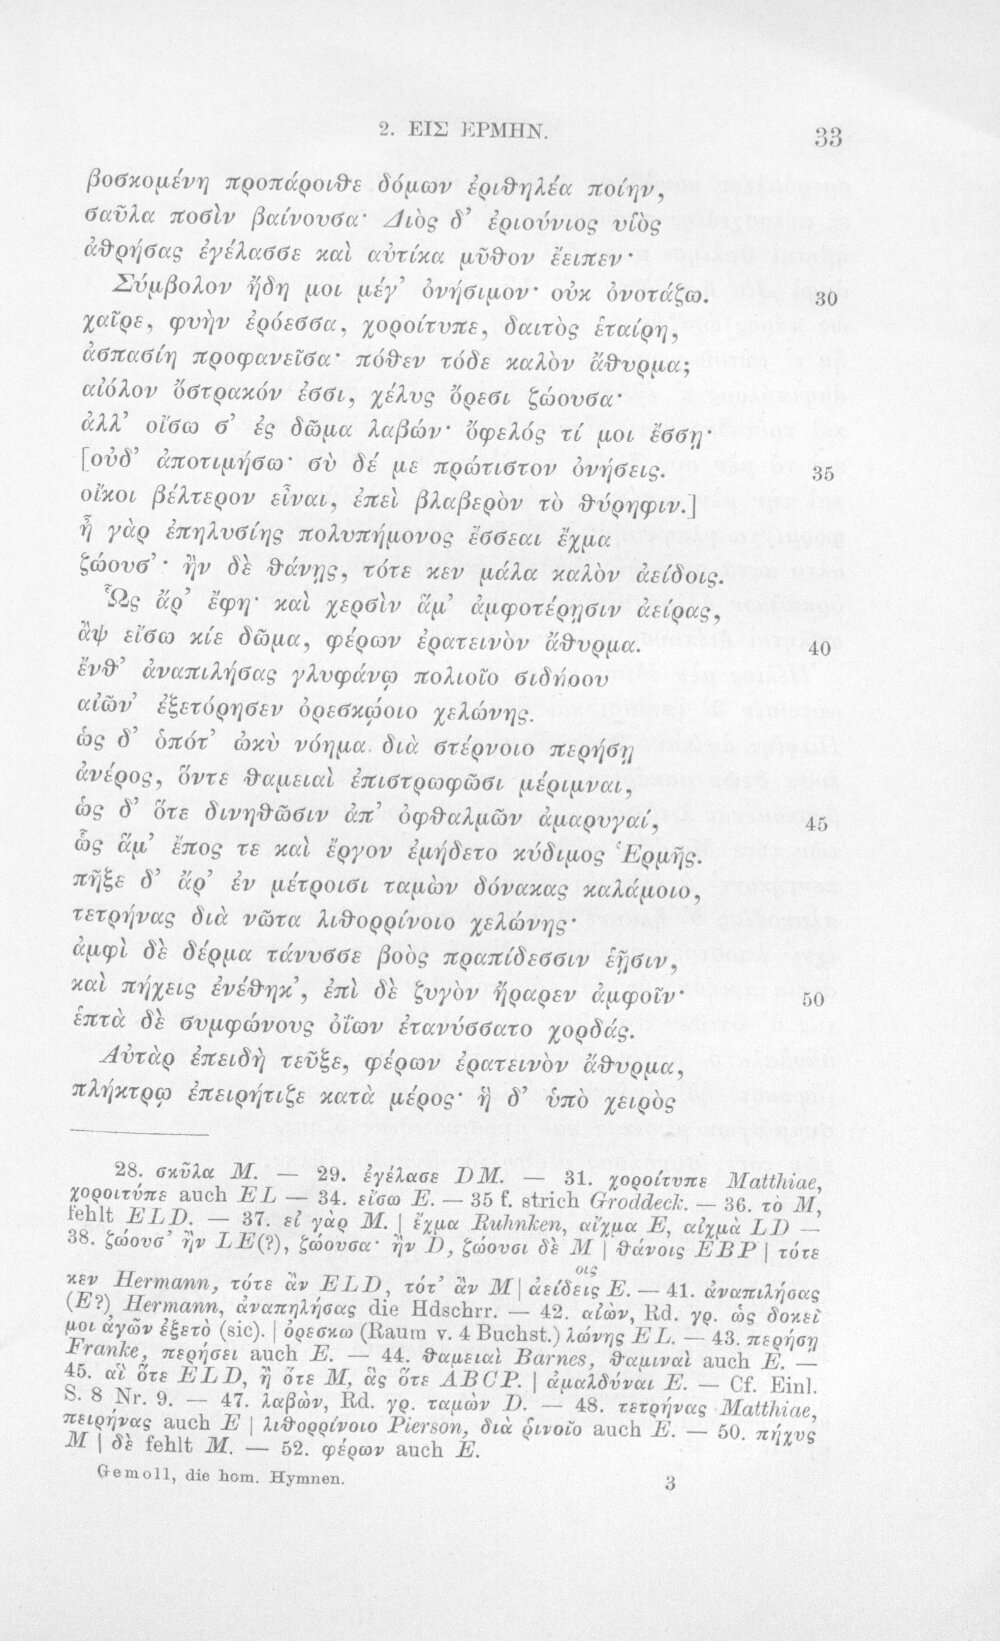 2. ΕΙΣ ΕΡΜΗΝ.
33
βοσκομένη προπάροιθε δόμων ἐριθηλέα ποίην,
σαῦλα ποσὶν βαίνουσα· Διὸς δ’ ἐριούνιος υἱὸς
ἀθρήσας ἐγέλασσε καὶ αὐτίκα μῦθον ἔειπεν·
Σύμβολον ἤδη μοι μέγ’ ὀνήσιμον· οὐκ ὀνοτάζω. 30
χαῖρε, φυὴν ἐρόεσσα, χοροίτυπε, δαιτὸς ἑταίρη,
ἀσπασίη προφανεῖσα· πόθεν τόδε καλὸν ἄθυρμα;
αἰόλον ὄστρακόν ἐσσι, χέλυς ὄρεσι ζώουσα·
ἀλλ’ οἴσω σ’ ἐς δῶμα λαβών· ὄφελός τί μοι ἔσσῃ·
[οὐδ’ ἀποτιμήσω· σὺ δέ με πρώτιστον ὀνήσεις. 35
οἴκοι βέλτερον εἶναι, ἐπεὶ βλαβερὸν τὸ θύρηφιν.]
ἦ γὰρ ἐπηλυσίης πολυπήμονος ἔσσεαι ἔχμα
ζώουσ’· ἢν δὲ θάνῃς, τότε κεν μάλα καλὸν ἀείδοις.
Ὣς ἄρ’ ἔφη· καὶ χερσὶν ἅμ’ ἀμφοτέρῃσιν ἀείρας,
ἂψ εἴσω κίε δῶμα, φέρων ἐρατεινὸν ἄθυρμα. 40
ἔνθ’ ἀναπιλήσας γλυφάνῳ πολιοῖο σιδήρου
αἰῶν’ ἐξετόρησεν ὀρεσκῴοιο χελώνης.
ὡς δ’ ὁπότ’ ὠκὺ νόημα διὰ στέρνοιο περήσῃ
ἀνέρος, ὅντε θαμειαὶ ἐπιστρωφῶσι μέριμναι,
ὡς δ’ ὅτε δινηθῶσιν ἀπ’ ὀφθαλμῶν ἀμαρυγαί, 45
ὣς ἅμ’ ἔπος τε καὶ ἔργον ἐμήδετο κύδιμος Ἑρμῆς.
πῆξε δ’ ἄρ’ ἐν μέτροισι ταμὼν δόνακας καλάμοιο,
τετρήνας διὰ νῶτα λιθορρίνοιο χελώνης·
ἀμφὶ δὲ δέρμα τάνυσσε βοὸς πραπίδεσσιν ἑῇσιν,
καὶ πήχεις ἐνέθηκ’, ἐπὶ δὲ ζυγὸν ἤραρεν ἀμφοῖν· 50
ἑπτὰ δὲ συμφώνους ὀΐων ἐτανύσσατο χορδάς.
Αὐτὰρ ἐπειδὴ τεῦξε, φέρων ἐρατεινὸν ἄθυρμα,
πλήκτρῳ ἐπειρήτιζε κατὰ μέρος· ἣ δ’ ὑπὸ χειρὸς
28. σκῦλα M. — 29. ἐγέλασε DM. — 31. χοροίτυπε Matthiae,
χοροιτύπε auch EL — 34. εἴσω E. — 35 f. strich Groddeck. — 36. τὸ M,
fehlt ELD. — 37. εἰ γὰρ M. | ἔχμα Ruhnken, αἴχμα E, αἰχμὰ LD —
38. ζώουσ’ ἢν LE(?), ζώουσα· ἢν D, ζώουσι δὲ M | θάνοις EBP | τότε
οις
κεν Hermann, τότε ἂν ELD, τότ’ ἂν M | ἀείδεις E. — 41. ἀναπιλήσας
(E?) Hermann, ἀναπηλήσας die Hdschrr. — 42. αἰών, Rd. γρ. ὡς δοκεῖ
μοι ἀγῶν ἐξετὸ (sic). | ὀρεσκω (Raum v. 4 Buchst.) λώνης EL. — 43. περήσῃ
Franke, περήσει auch E. — 44. θαμειαὶ Barnes, θαμιναὶ auch E. —
45. αἳ ὅτε ELD, ἢ ὅτε M, ἃς ὅτε ABCP. | ἀμαλδύναι E. — Cf. Einl.
S. 8 Nr. 9. — 47. λαβών, Rd. γρ. ταμὼν D. — 48. τετρήνας Matthiae,
πειρήνας auch E | λιθορρίνοιο Pierson, διὰ ῥινοῖο auch E. — 50. πήχυς
M | δὲ fehlt M. — 52. φέρων auch E.
Gemoll, die hom. Hymnen. 3